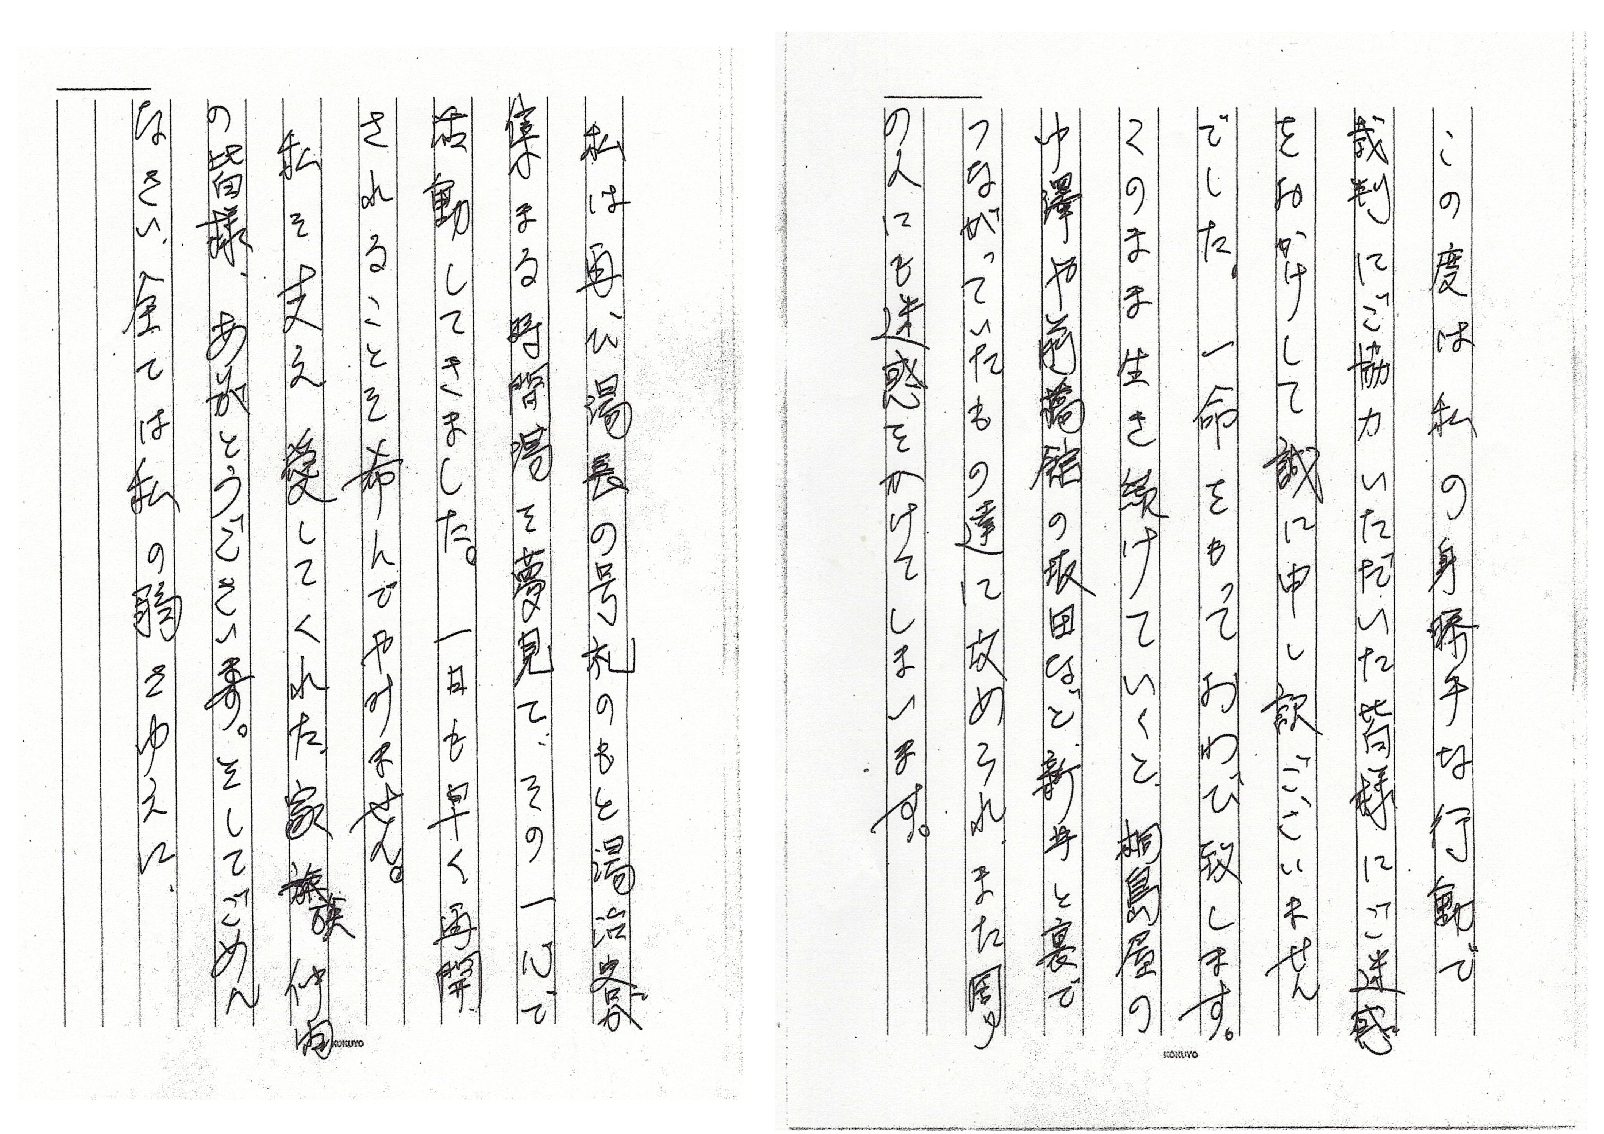 この度は私の身勝手な行動で
裁判にご協力いただいた皆様にご迷惑
をおかけして誠に申し訳ございません
でした。一命をもっておわび致します。
このまま生き続けていくと、桐島屋の
中澤や
館の坂田など、新手と裏で
つながっていたもの達に攻められ、また周り
の人にも迷惑をかけてしまいます。
私は再び湯長の号札のもと湯治客が
集まる時間湯を夢見て、その一心で
活動してきました。一日も早く再開
されることを希んでやみません。
私を支え愛してくれた家族仲間
の皆様、ありがとうございます。そしてごめん
なさい、全ては私の弱さゆえに、
KOKUYO
KOKUYO